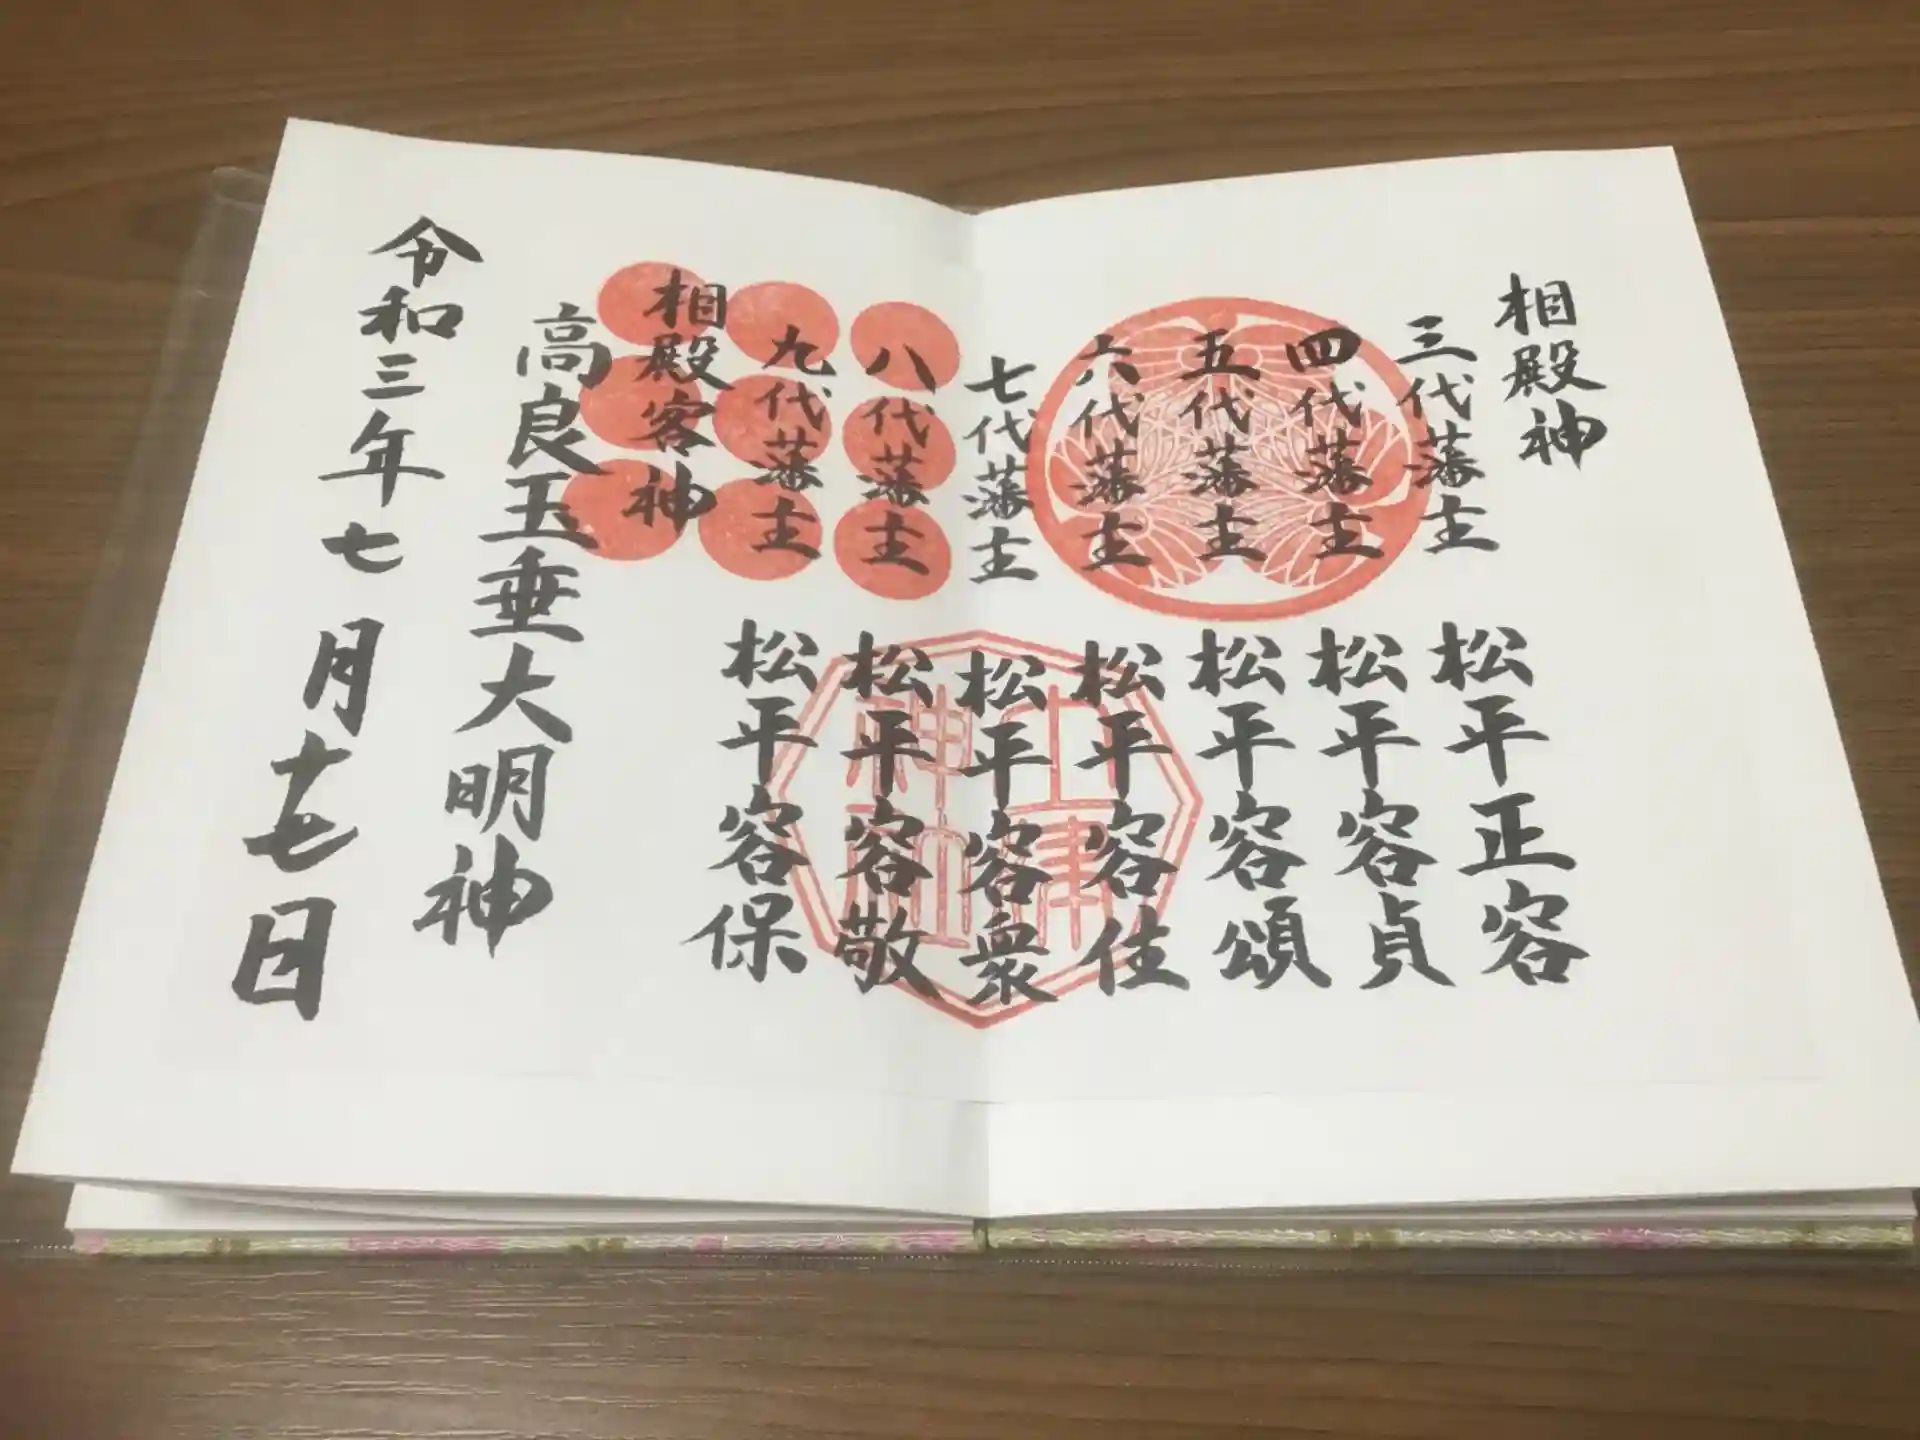 相殿神
三代藩主 松平正容
四代藩主 松平容貞
五代藩主 松平容頌
六代藩主 松平容住
七代藩主 松平容衆
八代藩主 松平容敬
九代藩主 松平容保
相殿客神
高良玉垂大明神
令和三年七月十七日
土津
神社